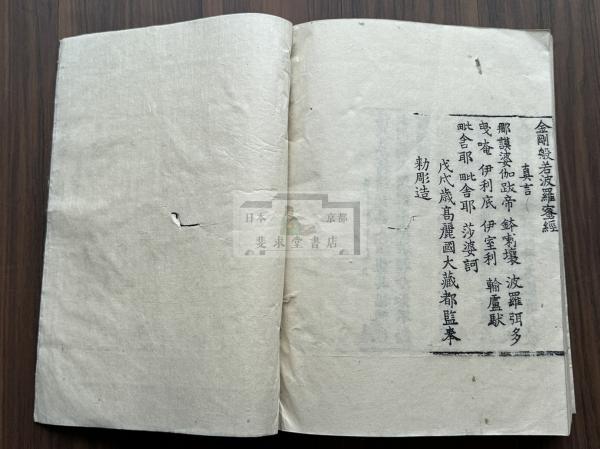 金剛般若波羅蜜經
真言
那謨婆伽跋帝 鉢喇壤 波羅弭多
曳 唵 伊利底 伊室利 輸盧馱
毗舍耶 毗舍耶 莎婆訶
戊戌歲高麗國大藏都監奉
勅彫造
日本 京都
斐求堂書店